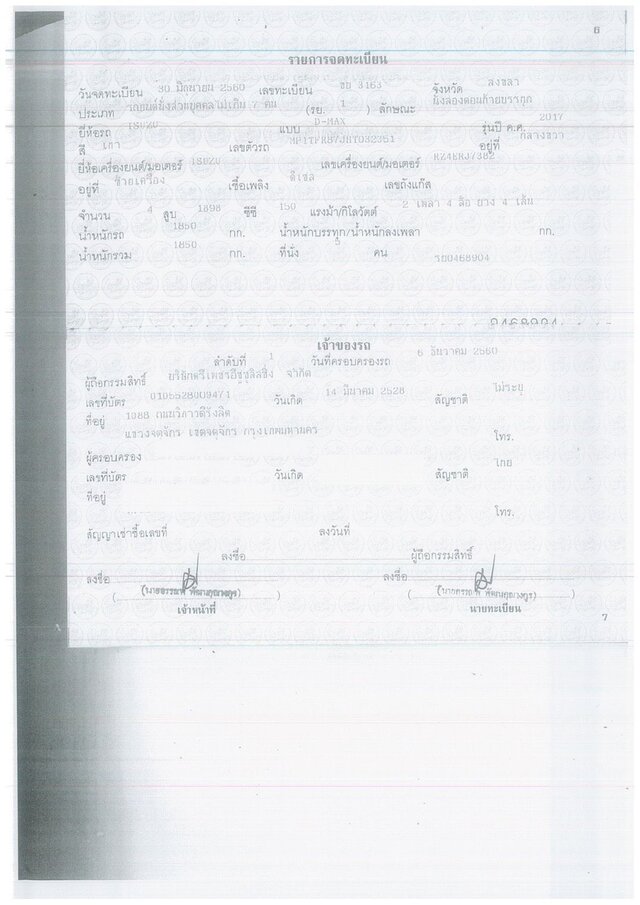 6
รายการจดทะเบียน
วันจดทะเบียน 30 มิถุนายน 2560 เลขทะเบียน ขย 3163 จังหวัด สงขลา
ประเภท รถยนต์นั่งส่วนบุคคลไม่เกิน 7 คน (รย. 1 ) ลักษณะ นั่งสองตอนท้ายบรรทุก
ยี่ห้อรถ ISUZU แบบ D-MAX รุ่นปี ค.ศ. 2017
สี เทา เลขตัวรถ อยู่ที่ กลางขวา
ยี่ห้อเครื่องยนต์/มอเตอร์ ISUZU เลขเครื่องยนต์/มอเตอร์ RZ4ERJ7382
อยู่ที่ ซ้ายเครื่อง เชื้อเพลิง ดีเซล เลขถังแก๊ส
จำนวน 4 สูบ 1898 ซีซี 150 แรงม้า/กิโลวัตต์ 2 เพลา 4 ล้อ ยาง 4 เส้น
น้ำหนักรถ 1850 กก. น้ำหนักบรรทุก/น้ำหนักลงเพลา กก.
น้ำหนักรวม 1850 กก. ที่นั่ง 5 คน
รย0468904
0468904
เจ้าของรถ
ลำดับที่ 1 วันที่ครอบครองรถ 6 ธันวาคม 2560
ผู้ถือกรรมสิทธิ์ บริษัทตรีเพชรอีซูซุลิสซิ่ง จำกัด
เลขที่บัตร 0105528009471 วันเกิด 14 มีนาคม 2528 สัญชาติ ไม่ระบุ
ที่อยู่ 1088 ถนนวิภาวดีรังสิต
แขวงจตุจักร เขตจตุจักร กรุงเทพมหานคร โทร.
ผู้ครอบครอง
เลขที่บัตร วันเกิด สัญชาติ ไทย
ที่อยู่
โทร.
สัญญาเช่าซื้อเลขที่ ลงวันที่
ลงชื่อ ผู้ถือกรรมสิทธิ์
ลงชื่อ ลงชื่อ
เจ้าหน้าที่ นายทะเบียน
7